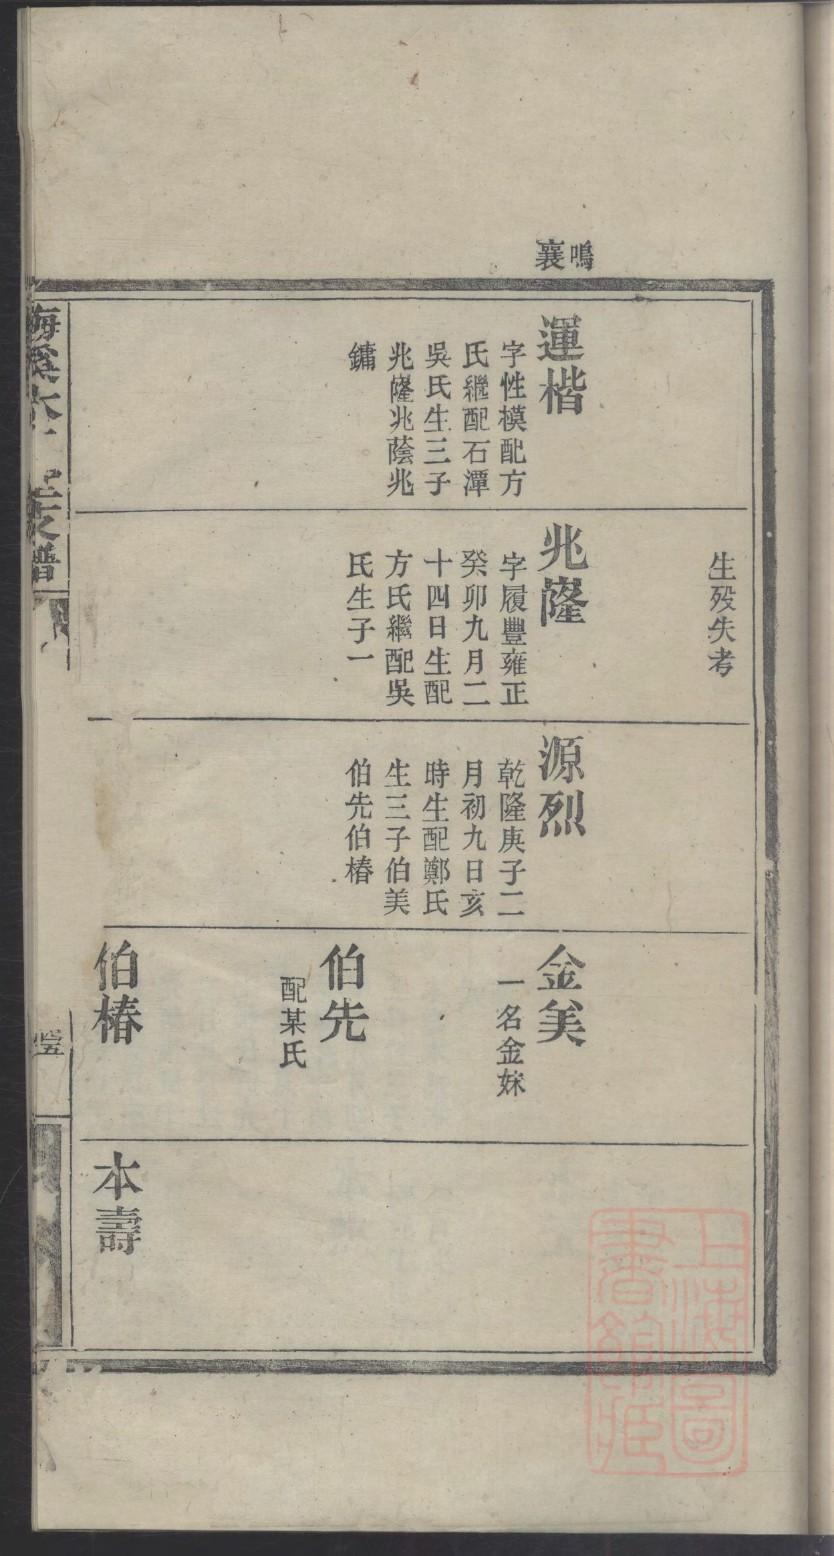 鳴
襄
運楷
字性模配方
氏繼配石潭
吳氏生三子
兆隆兆蔭兆
鏞
生歿失考
兆隆
字履豐雍正
癸卯九月二
十四日生配
方氏繼配吳
氏生子一
源烈
乾隆庚子二
月初九日亥
時生配鄭氏
生三子伯美
伯先伯椿
金美
一名金妹
伯先
配某氏
伯椿
本壽
上海圖
書館藏